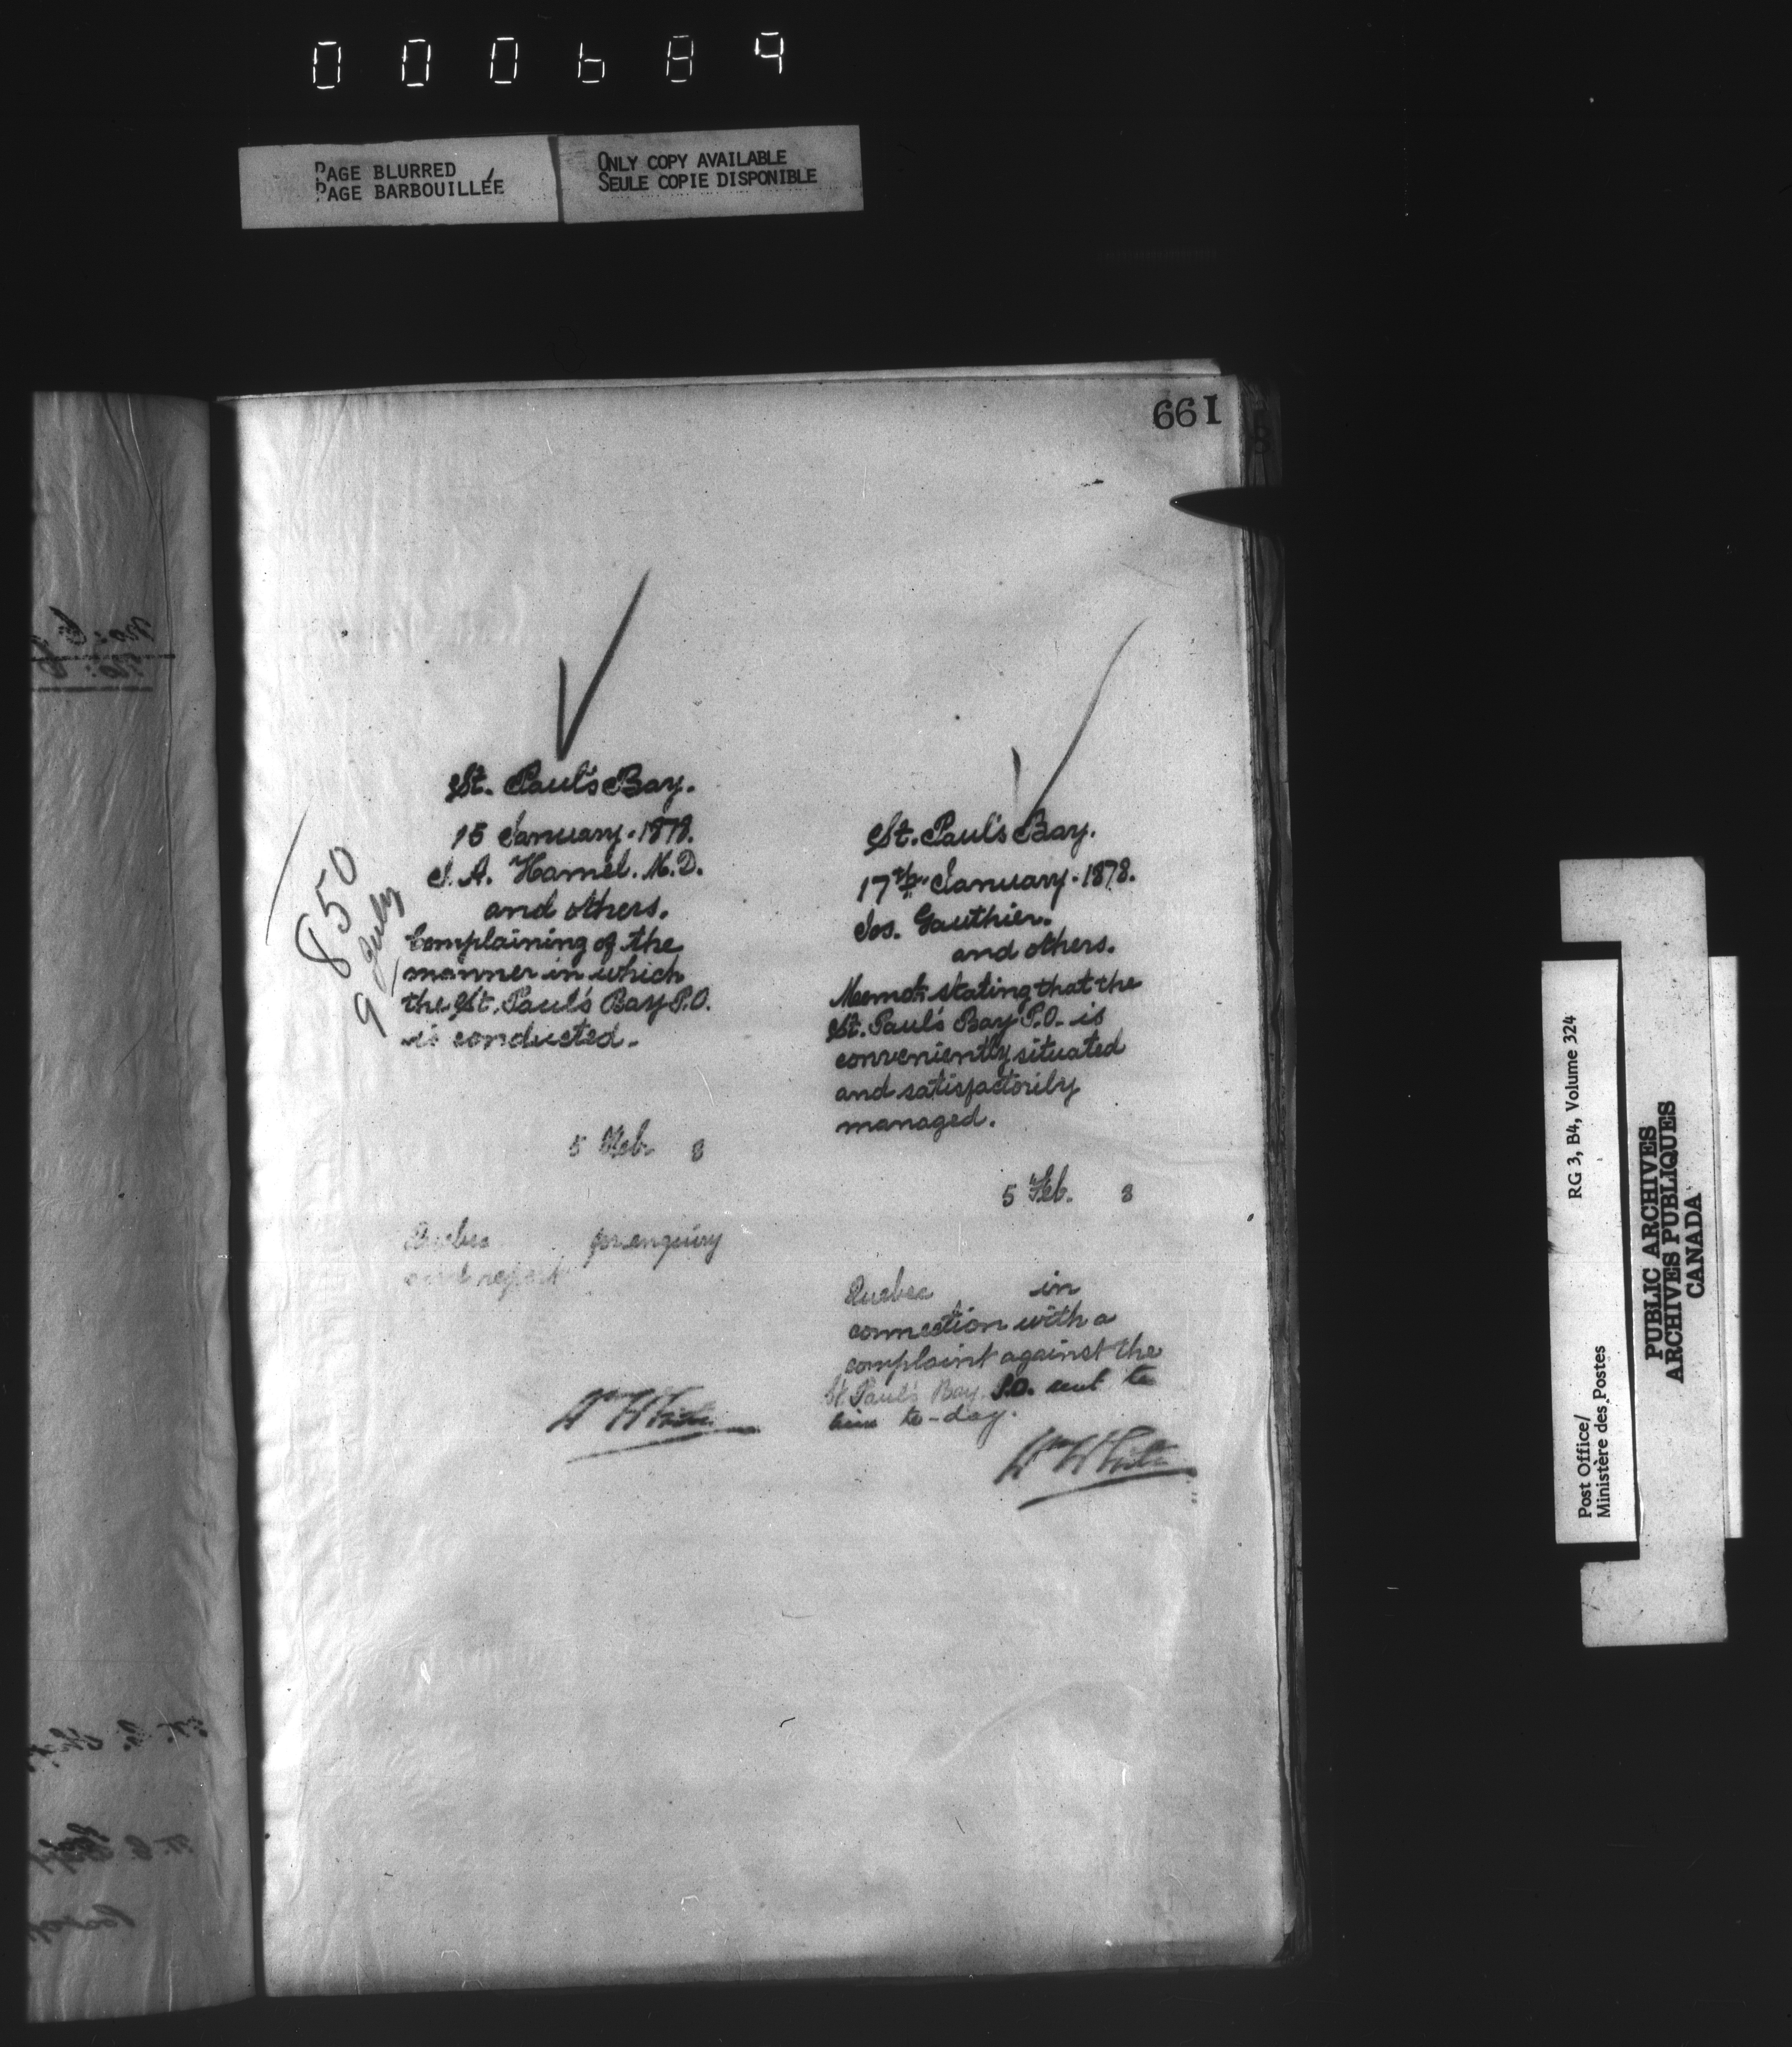 000689
PAGE BLURRED
PAGE BARBOUILLÉE
ONLY COPY AVAILABLE
SEULE COPIE DISPONIBLE
661
850
9 July
St. Paul's Bay.
15 January. 1878.
J. A. Hamel. M.D.
and others.
Complaining of the
manner in which
the St. Paul's Bay P.O.
is conducted.
5 Feb 8
Quebec for enquiry
and report
Wm White
St. Paul's Bay.
17th January. 1878.
Jos. Gauthier.
and others.
Memot. stating that the
St. Paul's Bay P.O. is
conveniently situated
and satisfactorily
managed.
5 Feb. 8
Quebec in
connection with a
complaint against the
St. Paul's Bay P.O. sent to
him to-day.
Wm White
RG 3, B4, Volume 324
Post Office/
Ministère des Postes
PUBLIC ARCHIVES
ARCHIVES PUBLIQUES
CANADA